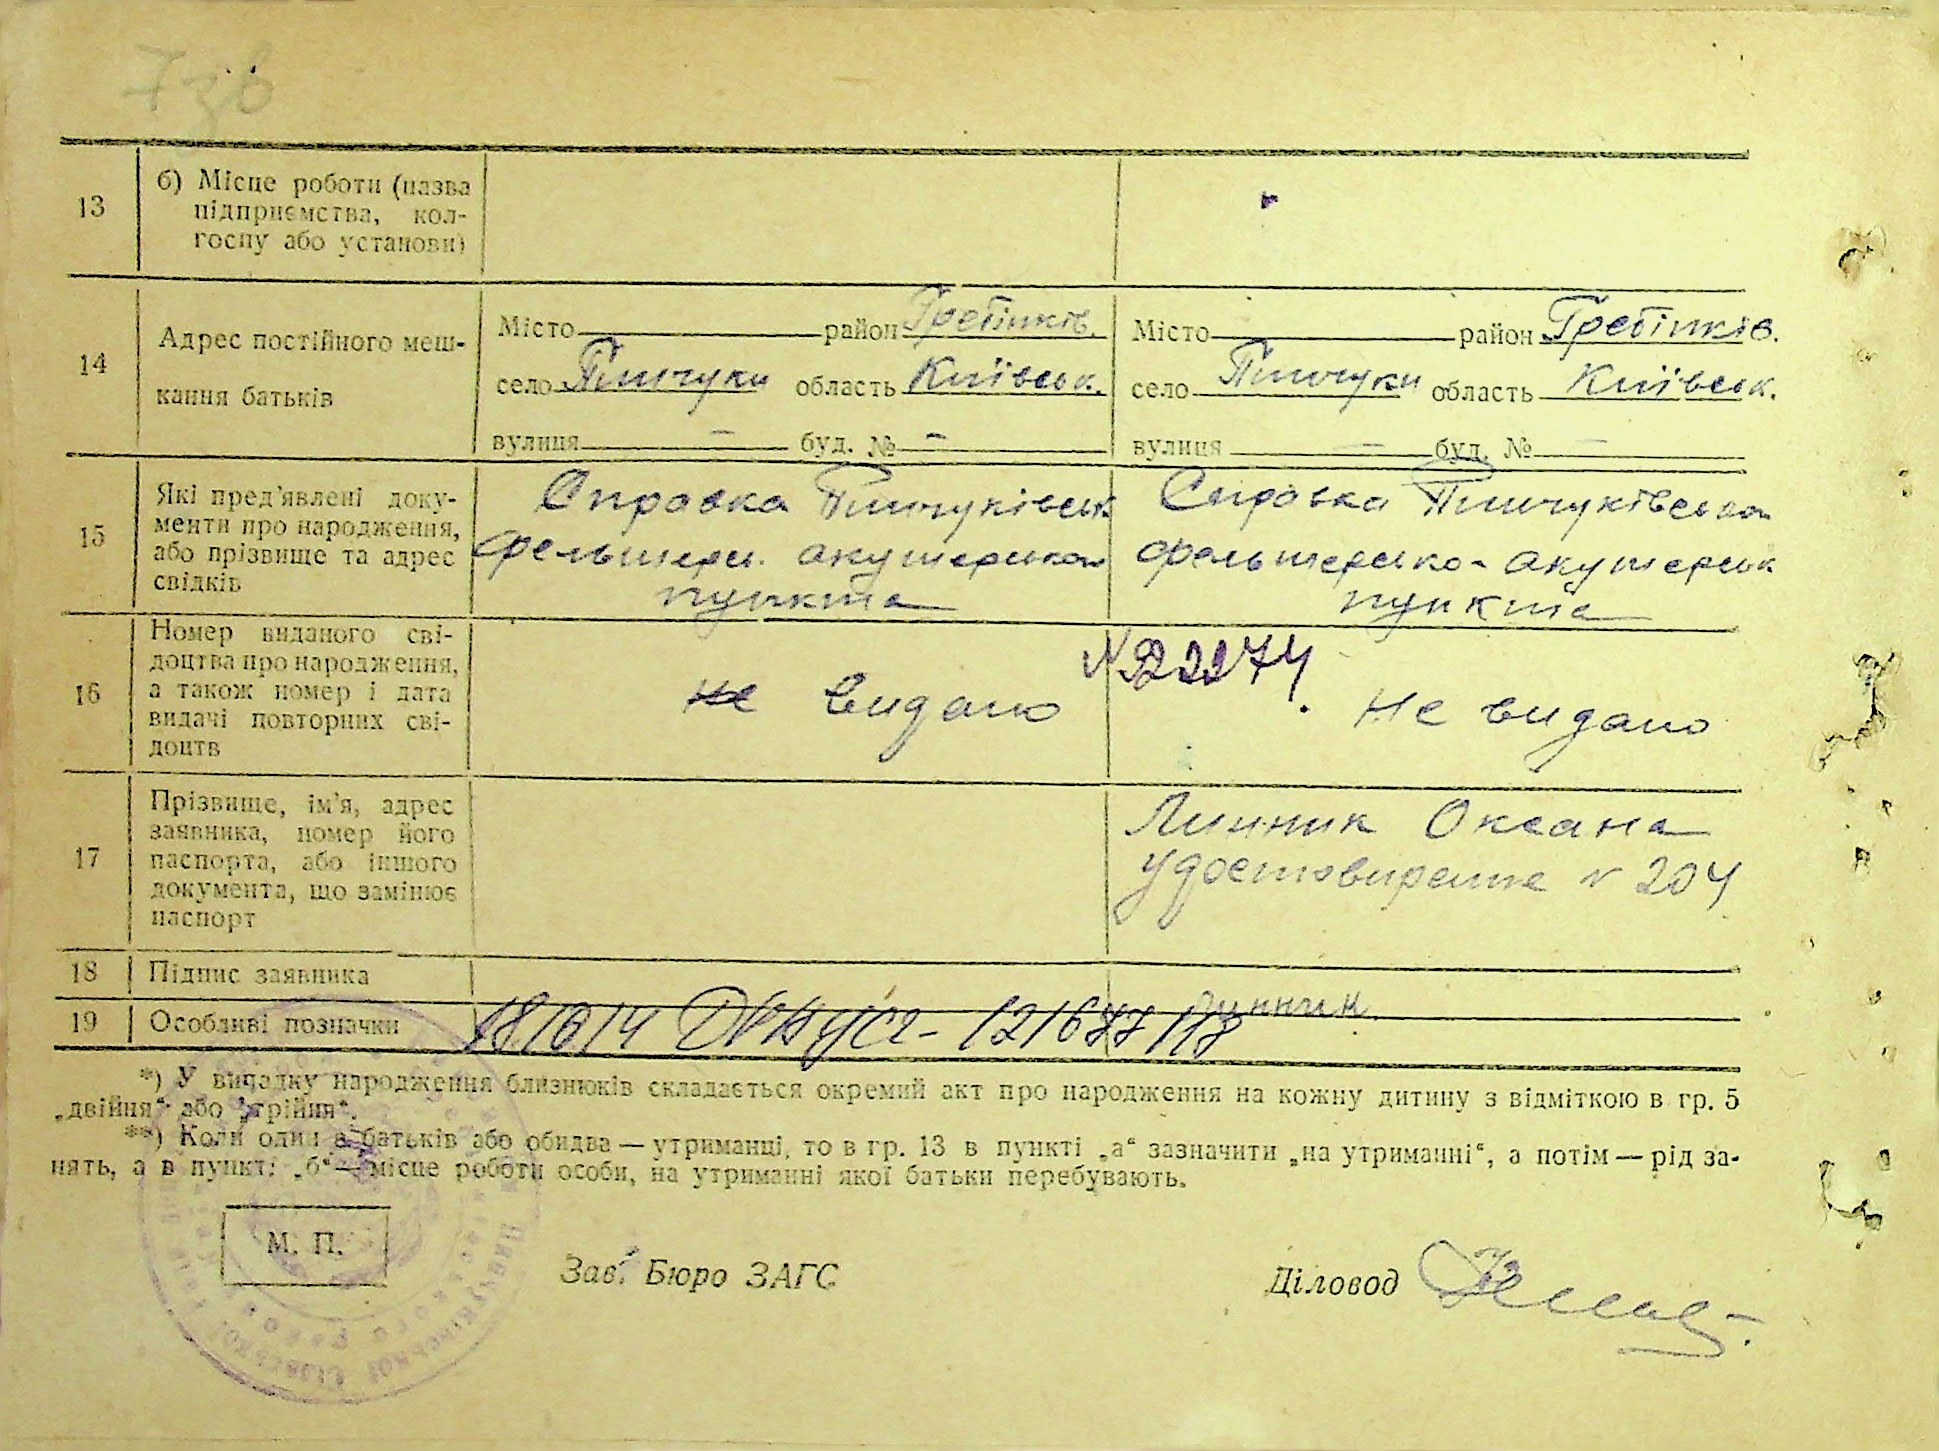 13
б) Місце роботи (назва
підприємства, кол-
госпу або установи)
14
Адрес постійного меш-
кання батьків
Місто район Гребінків.
село Пинчуки область Київськ.
вулиця — буд. № —
Місто район Гребінків.
село Пинчуки область Київськ.
вулиця — буд. № —
15
Які пред'явлені доку-
менти про народження,
або прізвище та адрес
свідків
Справка Пинчуківськ
фельшерс. акушерська
пункта
Справка Пинчуківська
фельшерсько-акушерськ
пункта
16
Номер виданого сві-
доцтва про народження,
а також номер і дата
видачі повторних сві-
доцтв
не видано
№ 22274
Не видано
17
Прізвище, ім'я, адрес
заявника, номер його
паспорта, або іншого
документа, що замінює
паспорт
Линник Оксана
удостовирение № 204
18
Підпис заявника
Линник
19
Особливі позначки
*) У випадку народження близнюків складається окремий акт про народження на кожну дитину з відміткою в гр. 5
„двійня“ або „трійня“.
**) Коли один з батьків або обидва — утриманці, то в гр. 13 в пункті „а“ зазначити „на утриманні“, а потім — рід за-
нять, а в пункті „б“ — місце роботи особи, на утриманні якої батьки перебувають.
М. П.
Зав. Бюро ЗАГС
Діловод